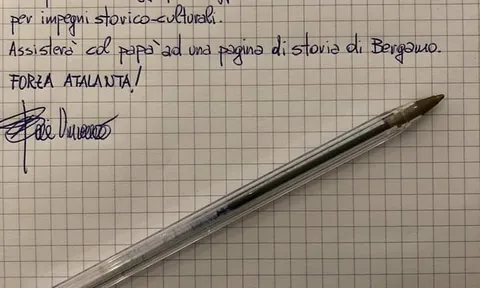 per impegni storico-culturali.
Assisterà col papà ad una pagina di storia di Bergamo.
FORZA ATALANTA!